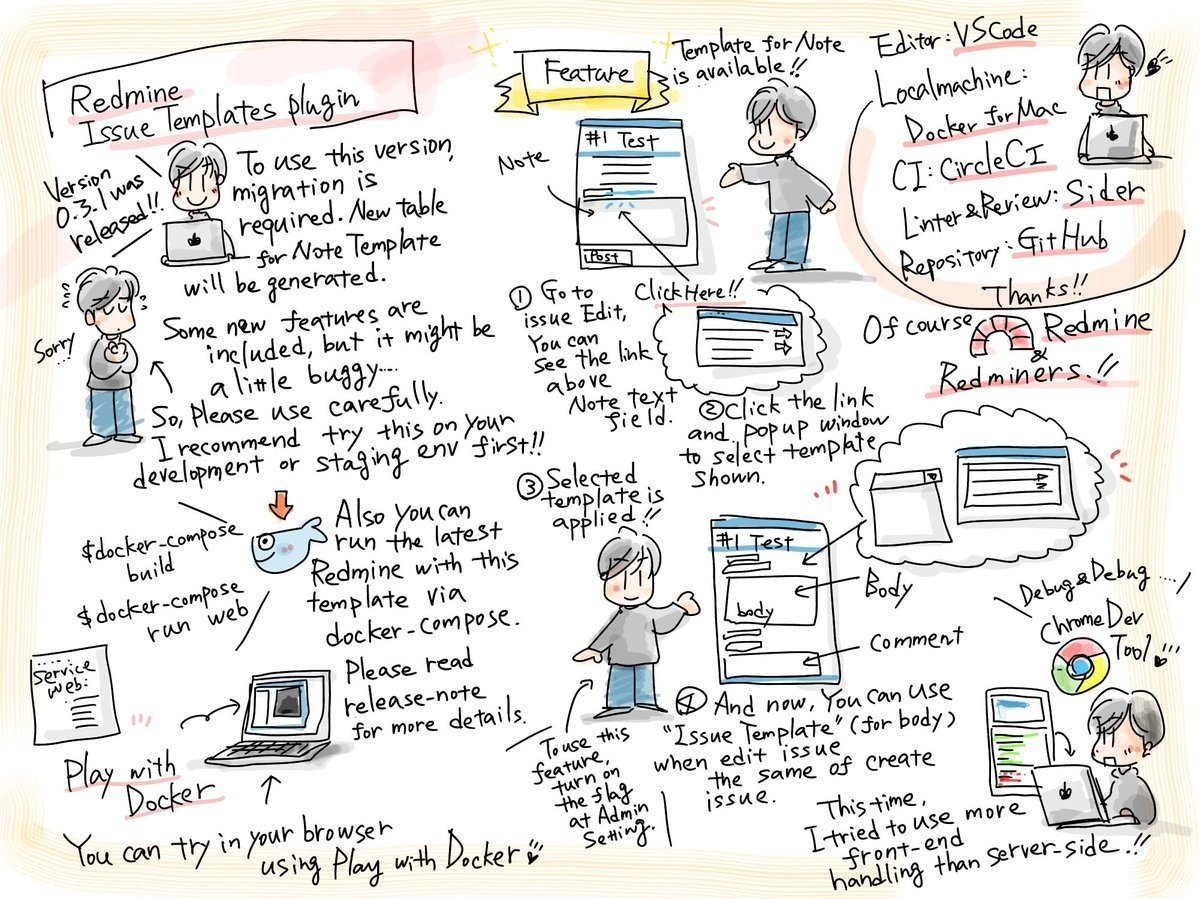 Redmine
Issue Templates plugin
Version
0.3.1 was
released!!
To use this version,
migration is
required. New table
for Note Template
will be generated.
Sorry...
Some new features are
included, but it might be
a little buggy...
So, Please use carefully.
I recommend try this on your
development or staging env first!!
$docker-compose
build
$docker-compose
run web
Also you can
run the latest
Redmine with this
template via
docker-compose.
Please read
release-note
for more details.
Service
Web:
Play with
Docker
You can try in your browser
using Play with Docker!!
Feature
Template for Note
is available!!
Note
#1 Test
Post
Click Here!!
① Go to
issue Edit,
You can
see the link
above
Note text
field.
② Click the link
and popup window
to select template
shown.
③ Selected
template is
applied!!
#1 Test
body
Body
comment
To use this
feature,
turn on
the flag
at Admin
Setting.
④ And now, You can use
"Issue Template" (for body)
when edit issue
the same of create
issue.
Editor: VSCode
Localmachine:
Docker for Mac
CI: CircleCI
Linter & Review: Sider
Repository: GitHub
Thanks!!
Of course
Redmine
&
Redminers.!!
Debug & Debug....
Chrome Dev
Tool!!!
This time,
I tried to use more
front-end
handling than server-side.!!